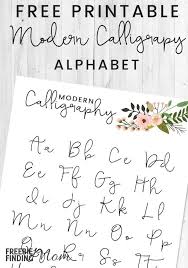 FREE PRINTABLE
Modern Calligrapy
ALPHABET
MODERN
Calligraphy
Aa Bb Cc Dd
Ee Ff Gg Hh
Ii Jj Kk Ll
Mm Nn Oo P
FREEBIE
FINDING
Mom